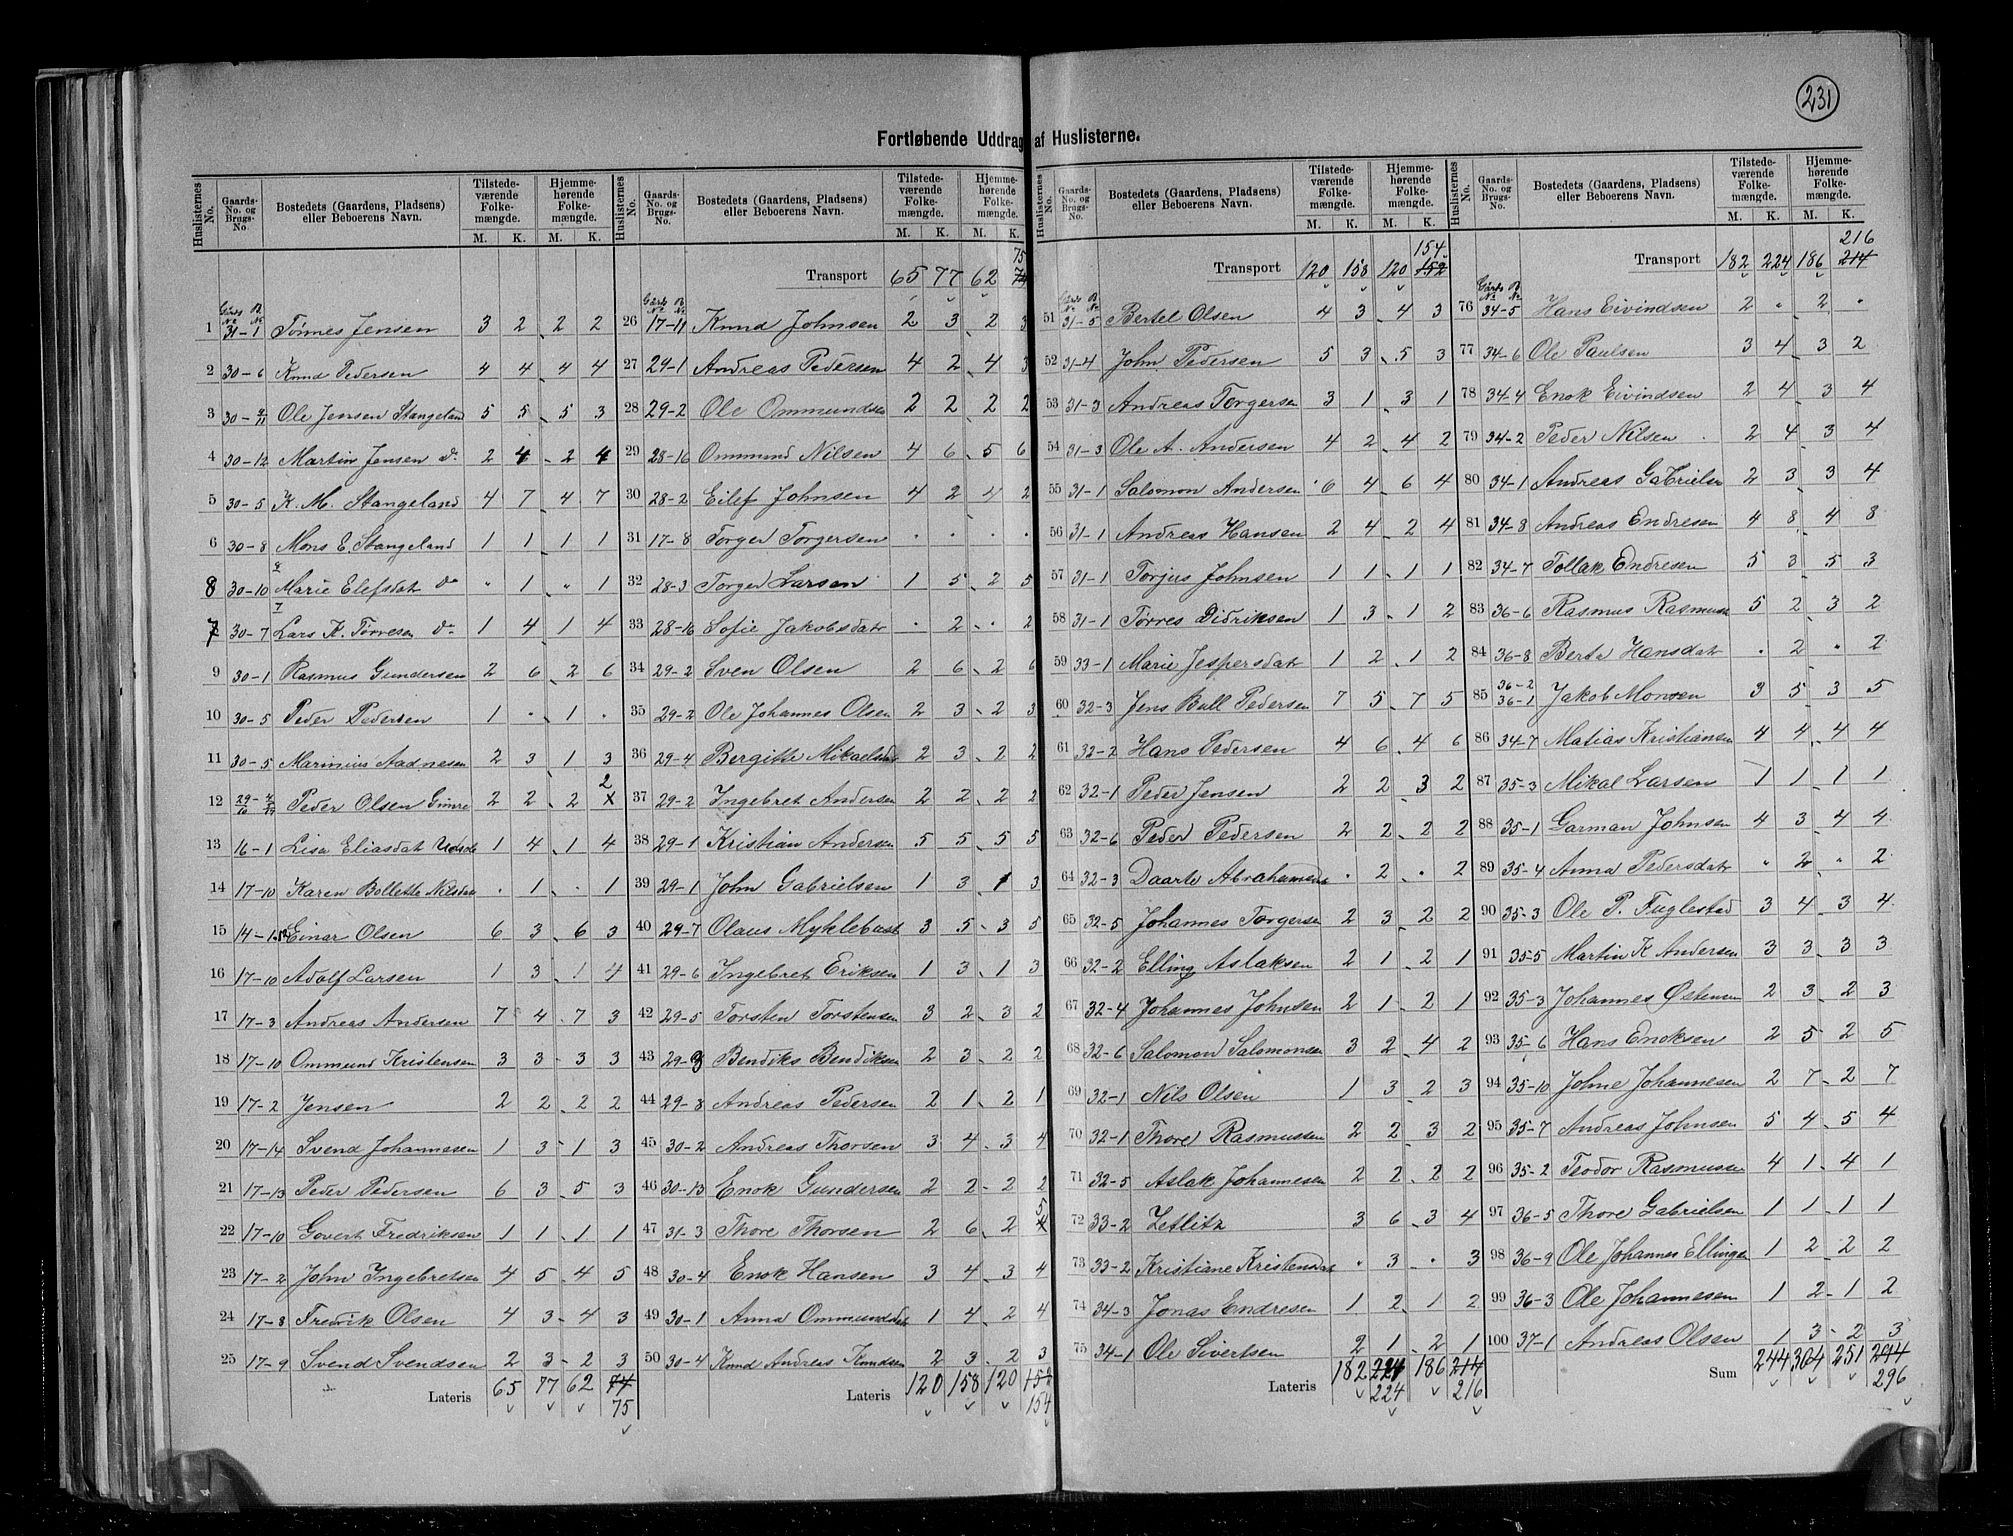 231
Fortløbende Uddrag af Huslisterne.
Huslisternes No. Gaards-No. og Brugs-No. Bostedets (Gaardens, Pladsens) eller Beboerens Navn. Tilstedeværende Folkemængde. M. K. Hjemmehørende Folkemængde. M. K.
Gårds No. B. No.
1 31-1 Tønnes Jensen 3 2 2 2
2 30-6 Knud Pedersen 4 4 4 4
3 30-9/11 Ole Jensen Stangeland 5 5 5 3
4 30-12 Martin Jensen do 2 4 2 4
5 30-5 K. M. Stangeland 4 7 4 7
6 30-8 Mons E. Stangeland 1 1 1 1
8 30-10 Marie Elefsdat do " 1 " 1
7 30-7 Lars K. Torresen do 1 4 1 4
9 30-1 Rasmus Gundersen 2 6 2 6
10 30-5 Peder Pedersen 1 . 1 .
11 30-5 Marinius Aadnesen 2 3 1 3
12 Peder Olsen Gimre 2 2 2 2
13 16-1 Lisa Eliasdat 1 4 1 4
14 17-10 Karen Bollette Nilsdat . 1 . 1
15 14-1 Einar Olsen 6 3 6 3
16 17-10 Adolf Larsen 1 3 1 4
17 17-3 Andreas Andersen 7 4 7 3
18 17-10 Ommund Kristensen 3 3 3 3
19 17-2 Jensen 2 2 2 2
20 17-14 Svend Johannesen 1 3 1 3
21 17-13 Peder Pedersen 6 3 5 3
22 17-10 Govert Fredriksen 1 1 1 1
23 17-2 John Ingebretsen 4 5 4 5
24 17-8 Fredrik Olsen 4 3 4 3
25 17-9 Svend Svendsen 2 3 2 3
Lateris 65 77 62 74
75
Huslisternes No. Gaards-No. og Brugs-No. Bostedets (Gaardens, Pladsens) eller Beboerens Navn. Tilstedeværende Folkemængde. M. K. Hjemmehørende Folkemængde. M. K.
75
Transport 65 77 62 74
Gårds No. B. No.
26 17-11 Knud Johnsen 2 3 2 3
27 29-1 Andreas Pedersen 4 2 4 3
28 29-2 Ole Ommundsen 2 2 2 2
29 28-16 Ommund Nilsen 4 6 5 6
30 28-2 Eilef Johnsen 4 2 4 2
31 17-8 Torger Torgersen . . . .
32 28-3 Torger Larsen 1 5 2 5
33 28-16 Sofie Jakobsdatr . 2 . 2
34 29-2 Sven Olsen 2 6 2 6
35 29-2 Ole Johannes Olsen 2 3 2 3
36 29-4 Bergitte Mikaelsdat 2 3 2 2
37 29-2 Ingebret Andersen 2 2 2 2
38 29-1 Kristian Andersen 5 5 5 5
39 29-1 John Gabrielsen 1 3 1 3
40 29-7 Olaus Myklebust 3 5 3 5
41 29-6 Ingebret Eriksen 1 3 1 3
42 29-5 Torsten Torstensen 3 2 3 2
43 29-3 Bendiks Bendiksen 2 3 2 2
44 29-8 Andreas Pedersen 2 1 2 1
45 30-2 Andreas Thorsen 3 4 3 4
46 30-13 Enok Gundersen 2 2 2 2
47 31-3 Thore Thorsen 2 6 2 5
48 30-4 Enok Hansen 3 4 3 4
49 30-1 Anna Ommundsdat 1 4 2 4
50 30-4 Knud Andreas Knudsen 2 3 2 3
Lateris 120 158 120 152
154
Huslisternes No. Gaards-No. og Brugs-No. Bostedets (Gaardens, Pladsens) eller Beboerens Navn. Tilstedeværende Folkemængde. M. K. Hjemmehørende Folkemængde. M. K.
154
Transport 120 158 120 152
51 31-5 Bertel Olsen 4 3 4 3
52 31-4 John Pedersen 5 3 5 3
53 31-3 Andreas Torgersen 3 1 3 1
54 31-3 Ole A. Andersen 4 2 4 2
55 31-1 Salomon Andersen 6 4 6 4
56 31-1 Andreas Hansen 2 4 2 4
57 31-1 Torjus Johnsen 1 1 1 1
58 31-1 Torres Didriksen 1 3 1 2
59 33-1 Marie Jespersdatr 1 2 1 2
60 32-3 Jens Bull Pedersen 7 5 7 5
61 32-2 Hans Pedersen 4 6 4 6
62 32-1 Peder Jensen 2 2 3 2
63 32-6 Peder Pedersen 2 2 2 2
64 32-3 Daarte Abrahamsdt . 2 . 2
65 32-5 Johannes Torgersen 2 3 2 2
66 32-2 Elling Aslaksen 2 1 2 1
67 32-4 Johannes Johnsen 2 1 2 1
68 32-6 Salomon Salomonsen 3 2 4 2
69 32-1 Nils Olsen 1 3 2 3
70 32-1 Thore Rasmussen 2 2 3 2
71 32-5 Aslak Johannesen 2 2 2 2
72 33-2 Zetlitz 3 6 3 4
73 33-2 Kristiane Kristensdat . 3 . 3
74 34-3 Jonas Endresen 1 2 1 2
75 34-1 Ole Sivertsen 2 1 2 1
Lateris 182 224 186 214
224 216
Huslisternes No. Gaards-No. og Brugs-No. Bostedets (Gaardens, Pladsens) eller Beboerens Navn. Tilstedeværende Folkemængde. M. K. Hjemmehørende Folkemængde. M. K.
216
Transport 182 224 186 214
76 34-5 Hans Eivindsen 2 " 2 "
77 34-6 Ole Paulsen 3 4 3 2
78 34-4 Enok Eivindsen 2 4 3 4
79 34-2 Peder Nilsen 2 4 3 4
80 34-1 Andreas Gabrielsen 2 3 3 4
81 34-8 Andreas Endresen 4 8 4 8
82 34-7 Tollak Endresen 5 3 5 3
83 36-6 Rasmus Rasmussen 5 2 3 2
84 36-8 Berta Hansdatr " 2 " 2
85 36-2 36-1 Jakob Monsen 3 5 3 5
86 34-7 Matias Kristiansen 4 4 4 4
87 35-3 Mikal Larsen 1 1 1 1
88 35-1 Garman Johnsen 4 3 4 4
89 35-4 Anna Pedersdatr " 2 " 2
90 35-3 Ole P. Fuglestad 3 4 3 4
91 35-5 Martin K Andersen 3 3 3 3
92 35-3 Johannes Østensen 2 3 2 3
93 35-6 Hans Enoksen 2 5 2 5
94 35-10 Johne Johannesen 2 7 2 7
95 35-7 Andreas Johnsen 5 4 5 4
96 35-2 Teodor Rasmussen 4 1 4 1
97 36-5 Thore Gabrielsen 1 1 1 1
98 36-9 Ole Johannes Ellingsen 1 2 2 2
99 36-3 Ole Johannesen 1 2 1 2
100 37-1 Andreas Olsen 1 3 2 3
Sum 244 304 251 294
296